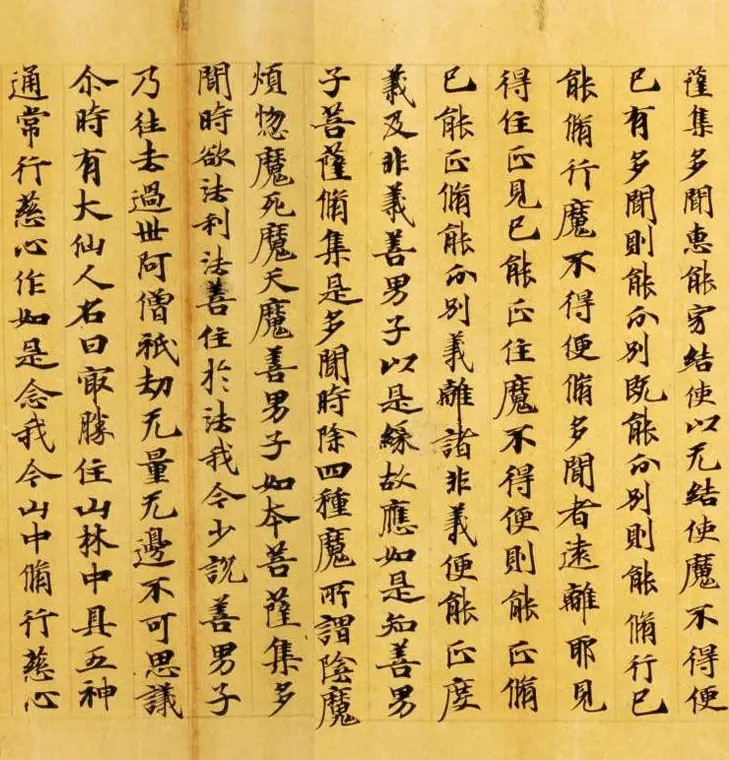 薩集多聞惠能害結使以无結使魔不得便
已有多聞則能分別既能分別則能脩行已
能脩行魔不得便脩多聞者遠離耶見
得住正見已能正住魔不得便則能正脩
已能正脩能分別義離諸非義便能正度
義及非義善男子以是緣故應如是知善男
子菩薩脩集是多聞時除四種魔所謂陰魔
煩惱魔死魔天魔善男子如本菩薩集多
聞時欲法利法善住於法我今少說善男子
乃往去過世阿僧祇劫无量无邊不可思議
尒時有大仙人名曰㝡勝住山林中具五神
通常行慈心作如是念我今山中脩行慈心